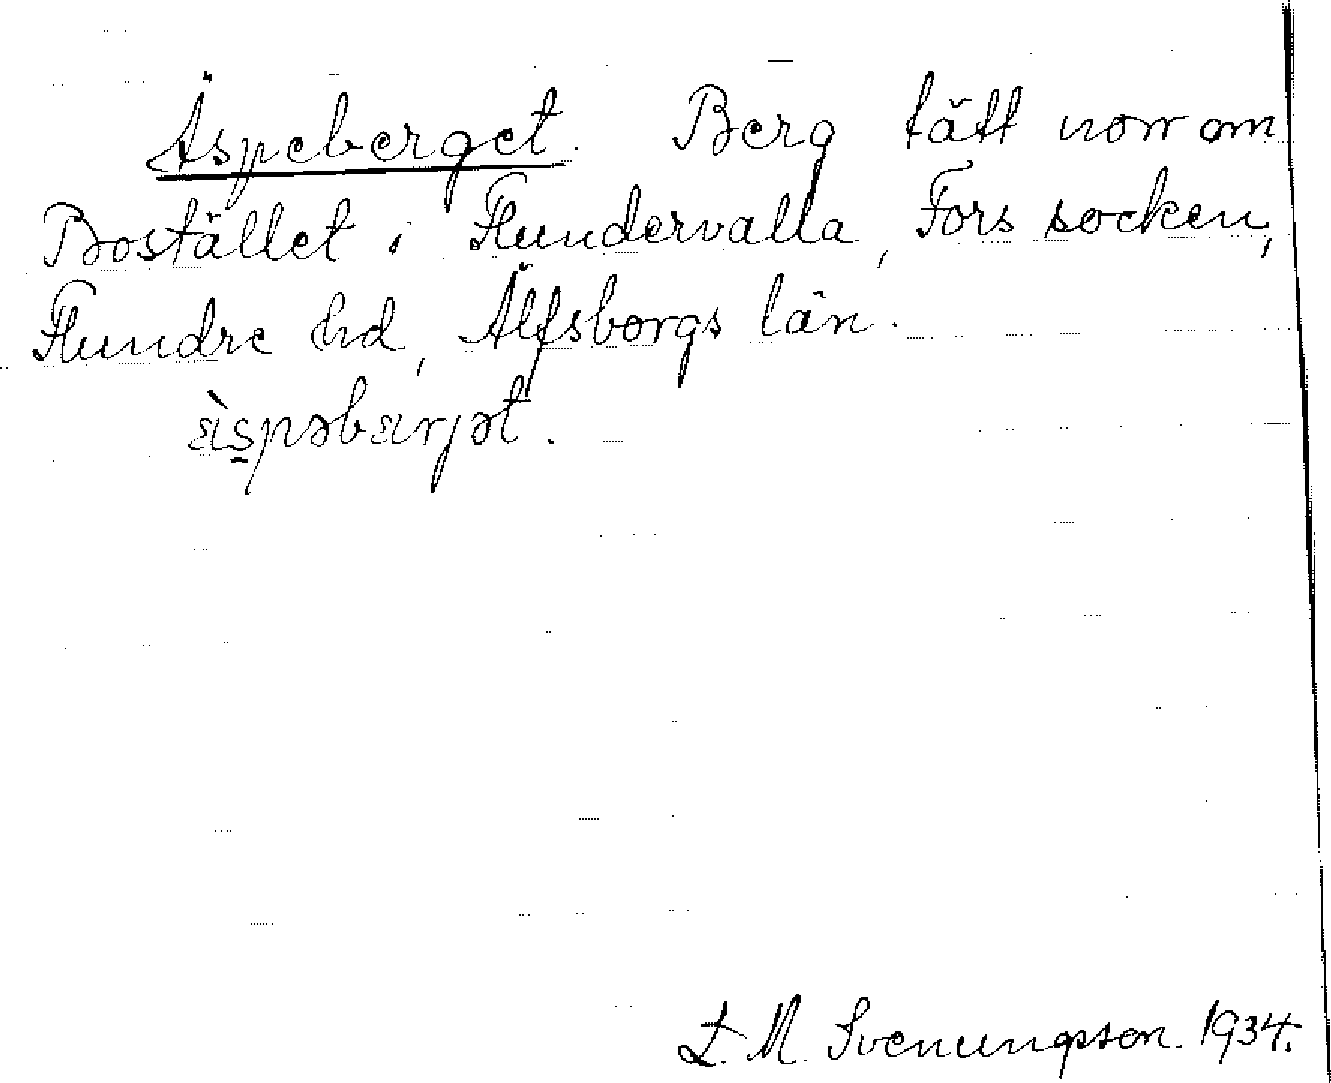 Äspeberget. Berg tätt norr om
Bostället i Flundervalla, Fors socken,
Flundre hd, Älfsborgs län.
äspəbärjət.
L. M. Svenungsson. 1934.